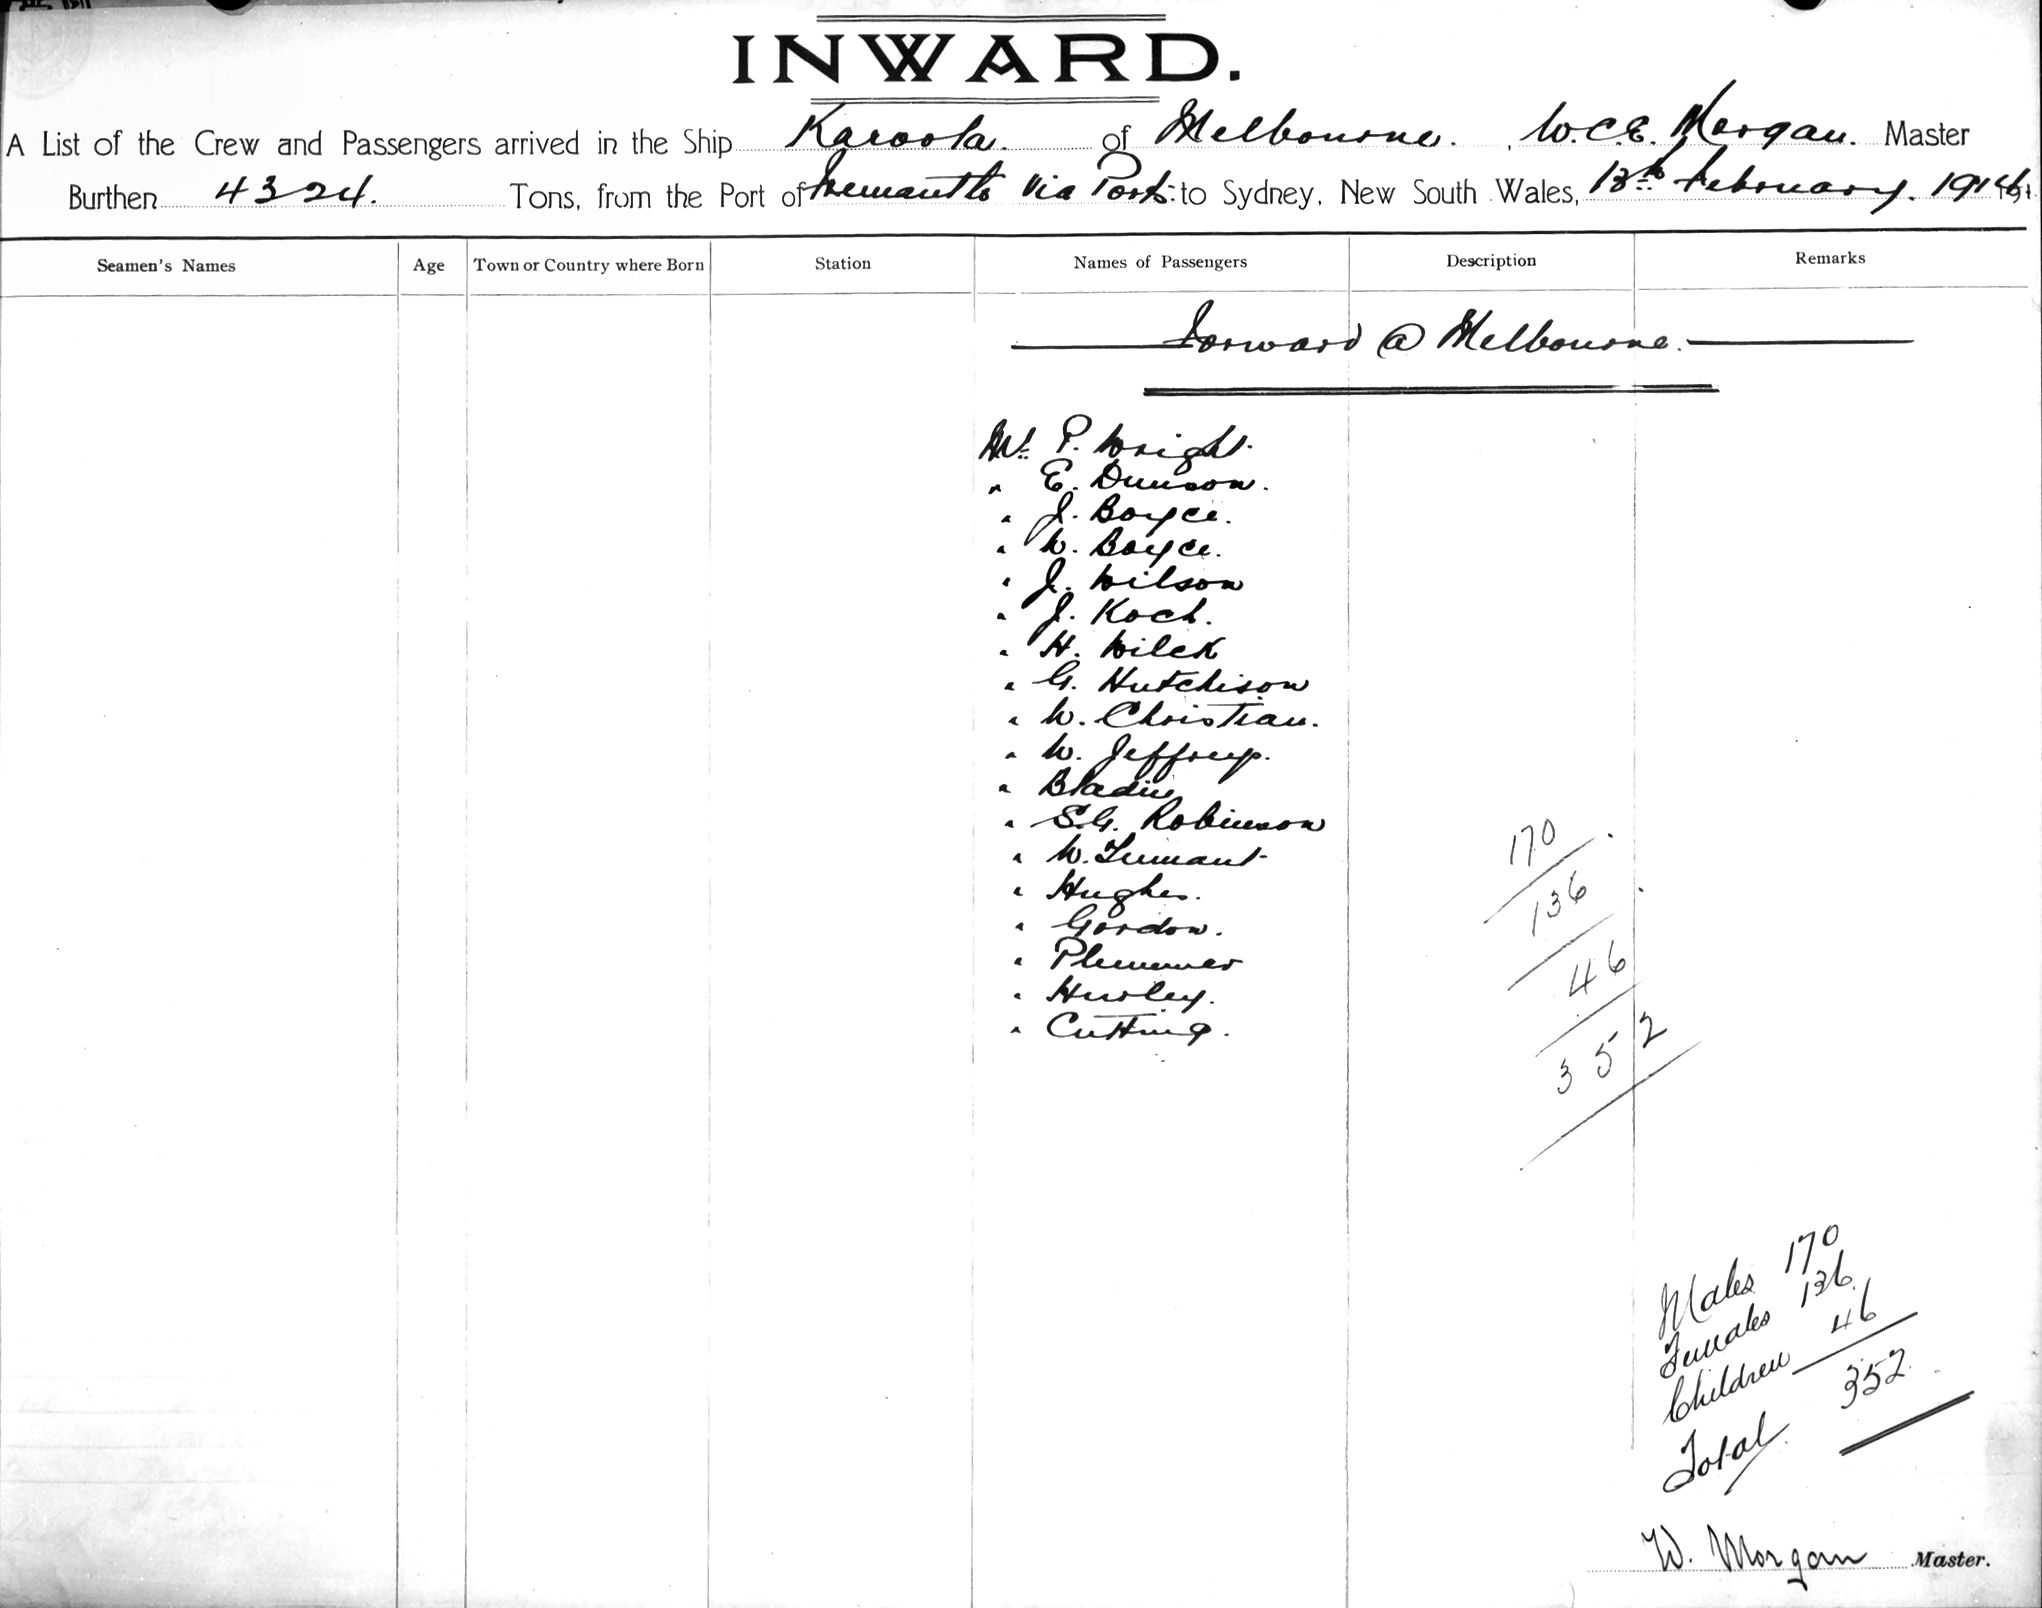 INWARD.
A List of the Crew and Passengers arrived in the Ship Karoola. of Melbourne. , W.C.E. Morgan. Master
Burthen 4324. Tons, from the Port of Fremantle Via Ports to Sydney, New South Wales, 13th February. 191
Seamen's Names Age Town or Country where Born Station Names of Passengers Description Remarks
Forward @ Melbourne.
Mr. P. Wright.
" E. Dunson.
" J. Boyce.
" W. Boyce.
" J. Wilson
" J. Koch.
" H. Wilck
" G. Hutchison
" W. Christian.
" W. Jeffrey.
" Bladin
" S.G. Robinson
" W.
" Hughes.
" Gordon.
" Plummer
" Hurley.
" Cutting.
170
136
46
352
Males 170
Females 136.
Children 46
Total 352
W. Morgan Master.